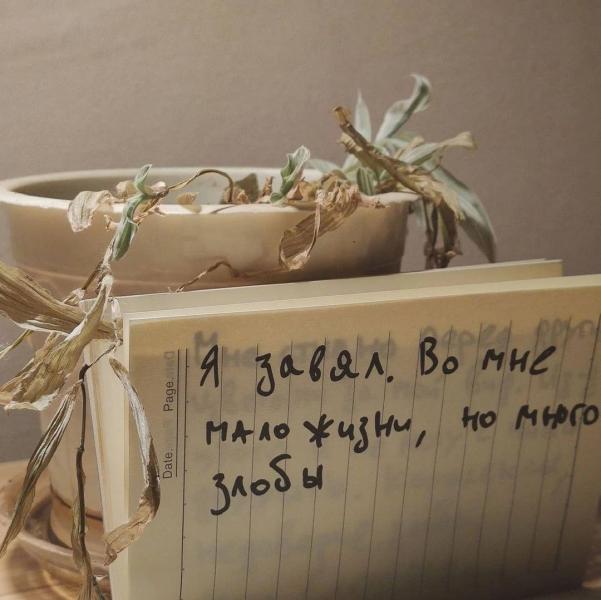 Я завял. Во мне
мало жизни, но много
злобы
Page
Date